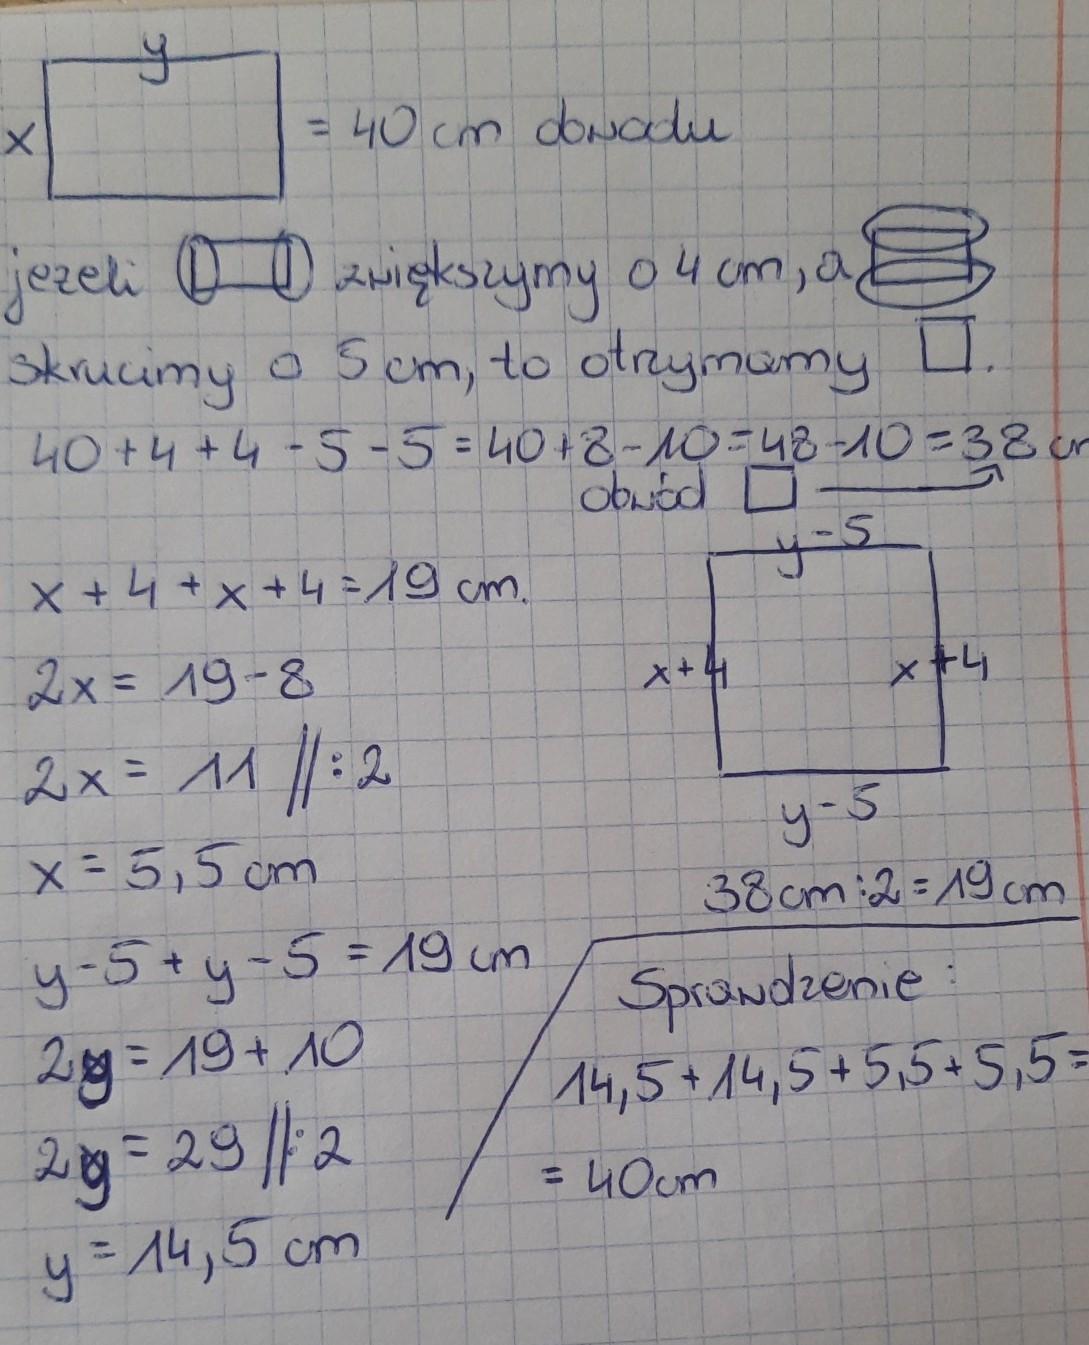 y
x = 40 cm obwodu
jezeli zwiększymy o 4 cm, a
skrucimy o 5 cm, to otrzymamy .
40 + 4 + 4 - 5 - 5 = 40 + 8 - 10 = 48 - 10 = 38 cm
obwód
y - 5
x + 4 + x + 4 = 19 cm.
x + 4 x + 4
2x = 19 - 8
2x = 11 // : 2
y - 5
x = 5,5 cm
38 cm : 2 = 19 cm
y - 5 + y - 5 = 19 cm
Sprawdzenie :
2y = 19 + 10
14,5 + 14,5 + 5,5 + 5,5 =
2y = 29 // : 2
= 40 cm
y = 14,5 cm